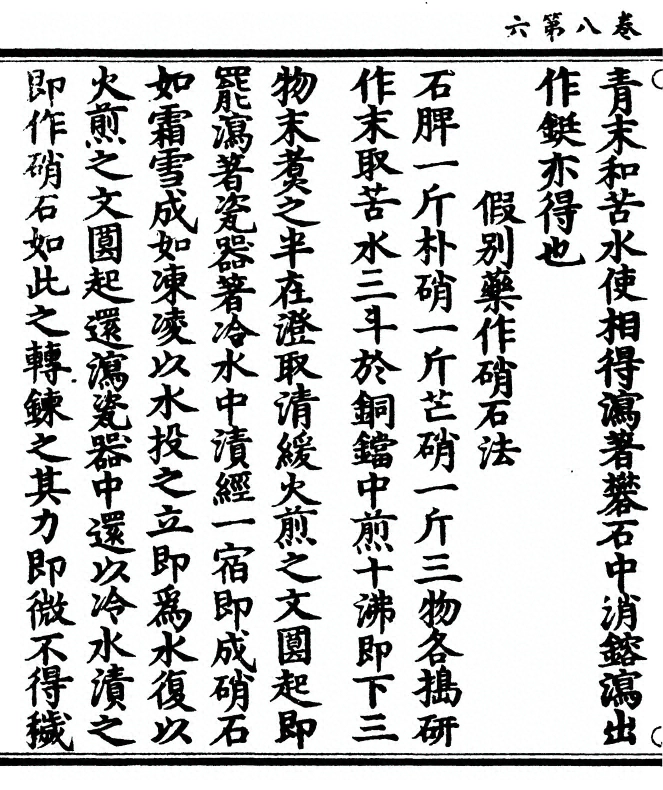 卷八第六
青末和苦水使相得瀉著礬石中消鎔瀉出
作鋌亦得也
假別藥作硝石法
石脾一斤朴硝一斤芒硝一斤三物各搗研
作末取苦水三斗於銅鐺中煎十沸即下三
物末煑之半在澄取清緩火煎之文圓起即
罷瀉著瓷器著冷水中漬經一宿即成硝石
如霜雪成如凍凌以水投之立即爲水復以
火煎之文圓起還瀉瓷器中還以冷水漬之
即作硝石如此之轉鍊之其力即微不得穢